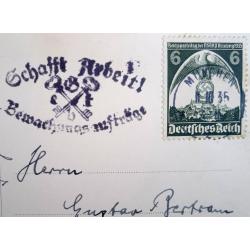 Schafft Arbeit!
Bewachungsaufträge
Reichsparteitag der NSDAP Nürnberg 1935
6 6
MÜNCHEN
35
Deutsches Reich
Herrn
Gustav Bertram